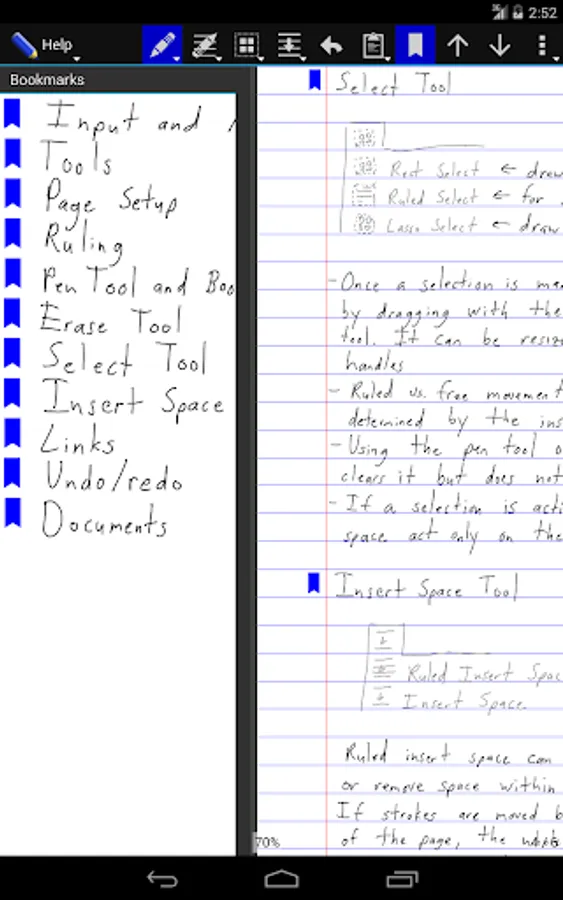 2:52
Help
Bookmarks
Input and
Tools
Page Setup
Ruling
Pen Tool and Boo
Erase Tool
Select Tool
Insert Space
Links
Undo/redo
Documents
Select Tool
Rect Select ← draw
Ruled Select ← for
Lasso Select ← draw
- Once a selection is ma
by dragging with the
tool. It can be resiz
handles
- Ruled vs. free movement
determined by the ins
- Using the pen tool o
clears it but does not
- If a selection is acti
space act only on the
Insert Space Tool
Ruled Insert Spac
Insert Space
Ruled insert space can
or remove space within
If strokes are moved b
of the page, the
70%